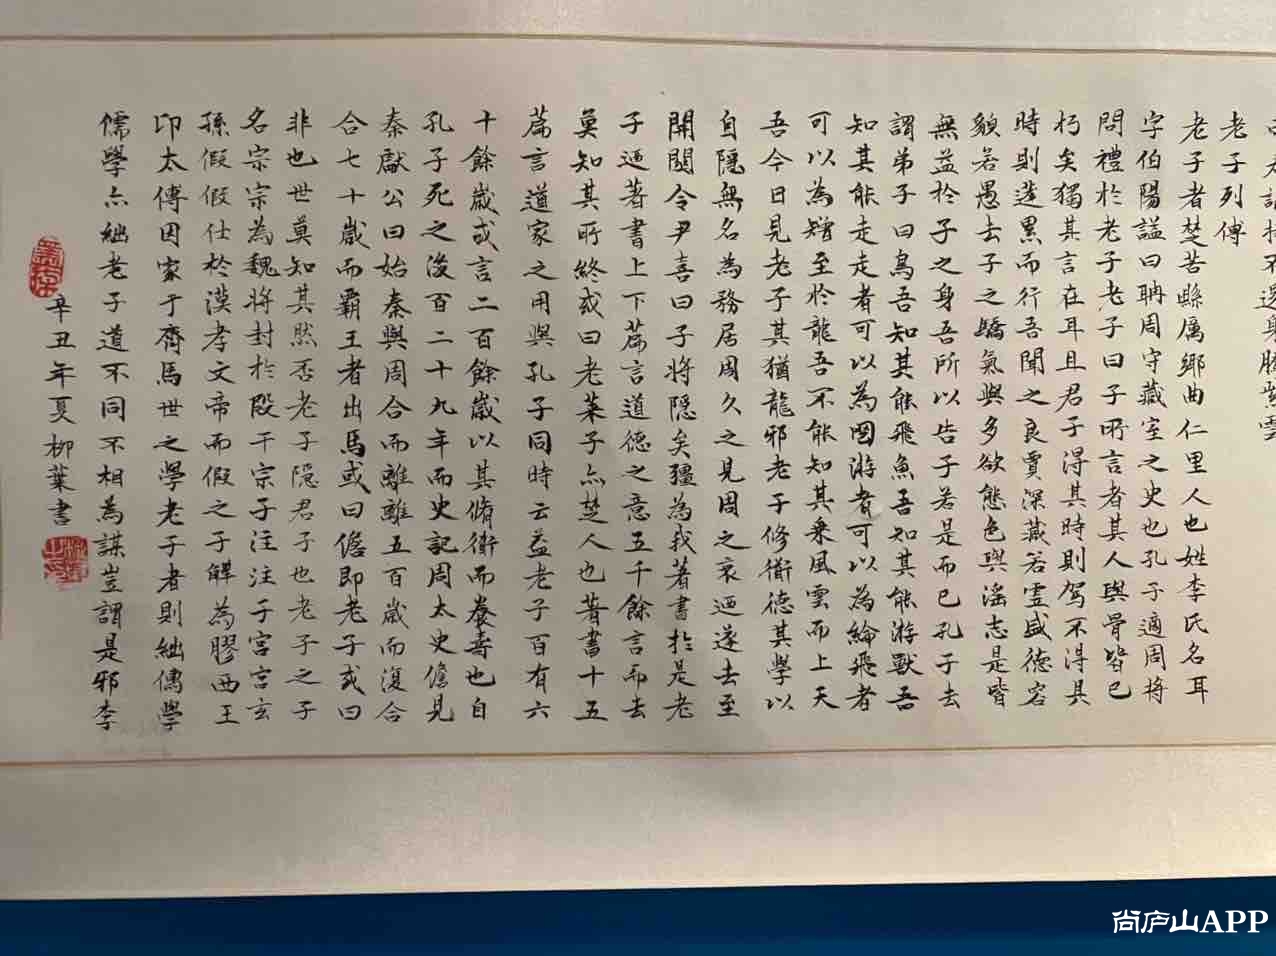 老子列傳
老子者楚苦縣厲鄉曲仁里人也姓李氏名耳
字伯陽謚曰聃周守藏室之史也孔子適周將
問禮於老子老子曰子所言者其人與骨皆已
朽矣獨其言在耳且君子得其時則駕不得其
時則蓬累而行吾聞之良賈深藏若虛盛德容
貌若愚去子之驕氣與多欲態色與淫志是皆
無益於子之身吾所以告子若是而已孔子去
謂弟子曰鳥吾知其能飛魚吾知其能游獸吾
知其能走走者可以為罔游者可以為綸飛者
可以為矰至於龍吾不能知其乘風雲而上天
吾今日見老子其猶龍邪老子修衜德其學以
自隱無名為務居周久之見周之衰迺遂去至
關關令尹喜曰子將隱矣彊為我著書於是老
子迺著書上下篇言道德之意五千餘言而去
莫知其所終或曰老萊子亦楚人也著書十五
篇言道家之用與孔子同時云蓋老子百有六
十餘歲或言二百餘歲以其脩衜而養壽也自
孔子死之後百二十九年而史記周太史儋見
秦獻公曰始秦與周合而離離五百歲而復合
合七十歲而霸王者出焉或曰儋即老子或曰
非也世莫知其然否老子隱君子也老子之子
名宗宗為魏將封於段干宗子注注子宮宮玄
孫假假仕於漢孝文帝而假之子解為膠西王
卬太傅因家于齊焉世之學老子者則絀儒學
儒學亦絀老子道不同不相為謀豈謂是邪李
辛丑年夏柳葉書
尚庐山APP